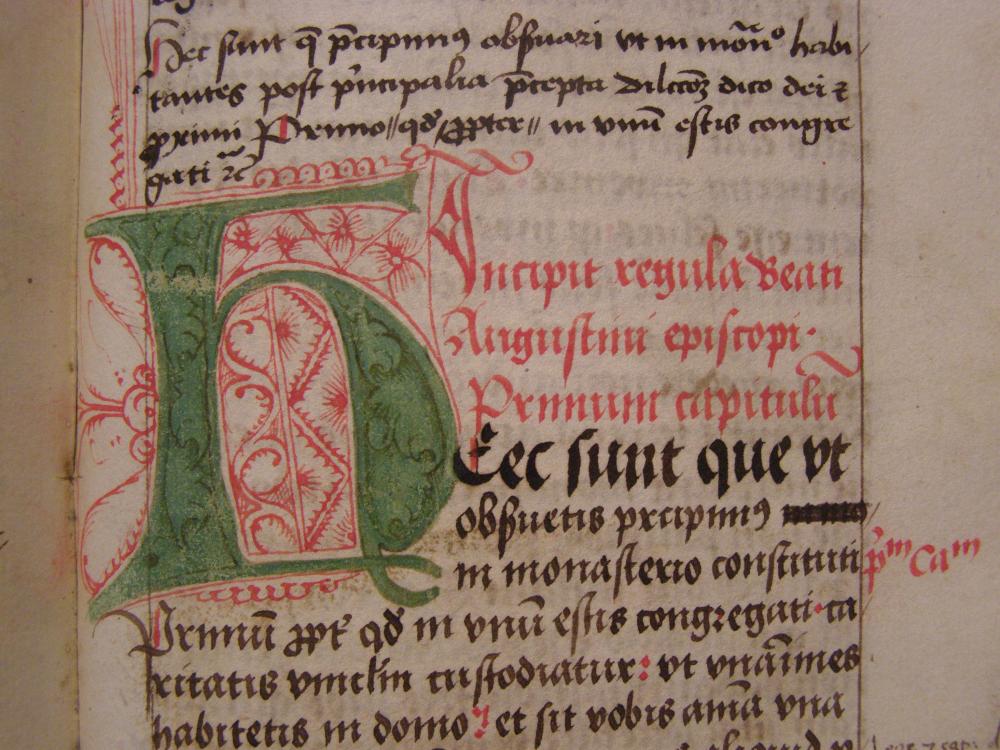 Hec sunt q̄ p̄cipimꝰ obẜuari vt in moñº habi
tantes post pͥncipalia p̄cepta dilcc̄oꝫ dico dei ⁊
proximi Primo qđ ꝓpter in vnū estis congre
gati ꝛc̄
Incipit regula Beati
Augustini episcopi·
Primum capitulū
HEec sunt que vt
obẜuetis precipimꝰ
in monasterio constituti pͫm Caͫm
Primū ꝓpt̾ qđ in vnū estis congregati· ca
ritatis vinclm custodiatur: vt vnāimes
habitetis in domo? et sit vobis aīa vna